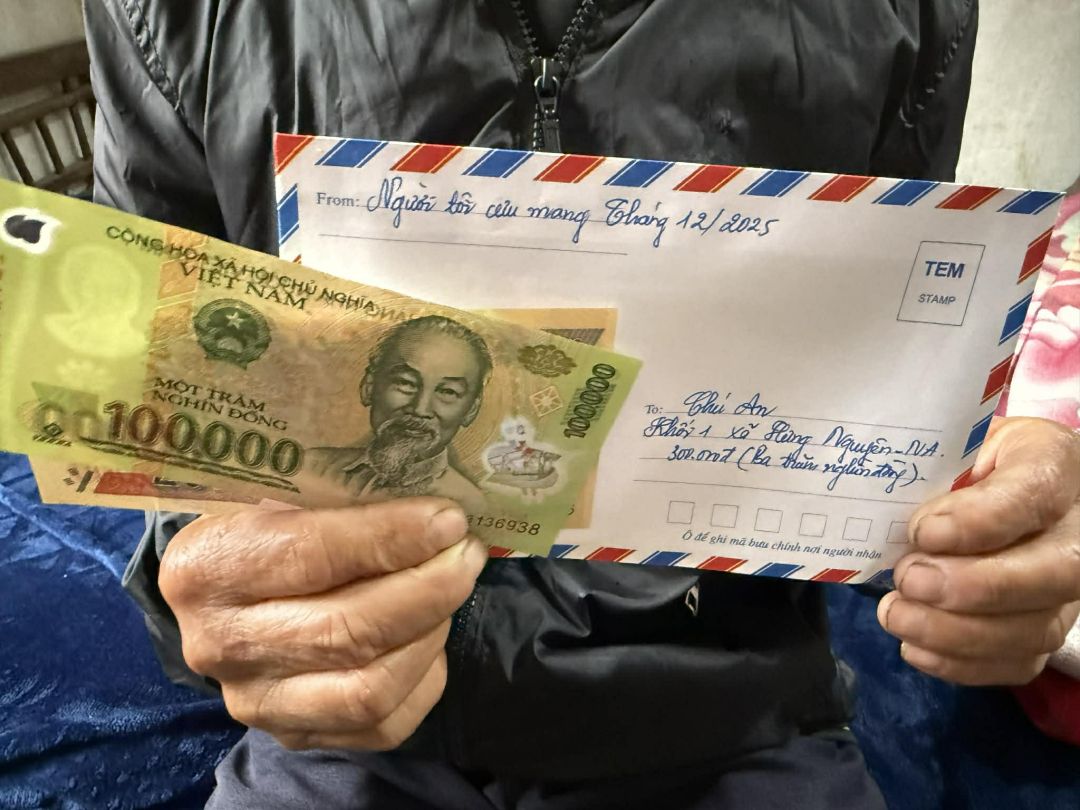 From: Người tôi cưu mang Tháng 12/2025
TEM
STAMP
CỘNG HÒA XÃ HỘI CHỦ NGHĨA
VIỆT NAM
MỘT TRĂM
NGHÌN ĐỒNG
100000
100000
136938
To: Chú An
Khối 1 xã Hưng Nguyên-NA.
300.000đ (ba trăm nghìn đồng).
Ô để ghi mã bưu chính nơi người nhận